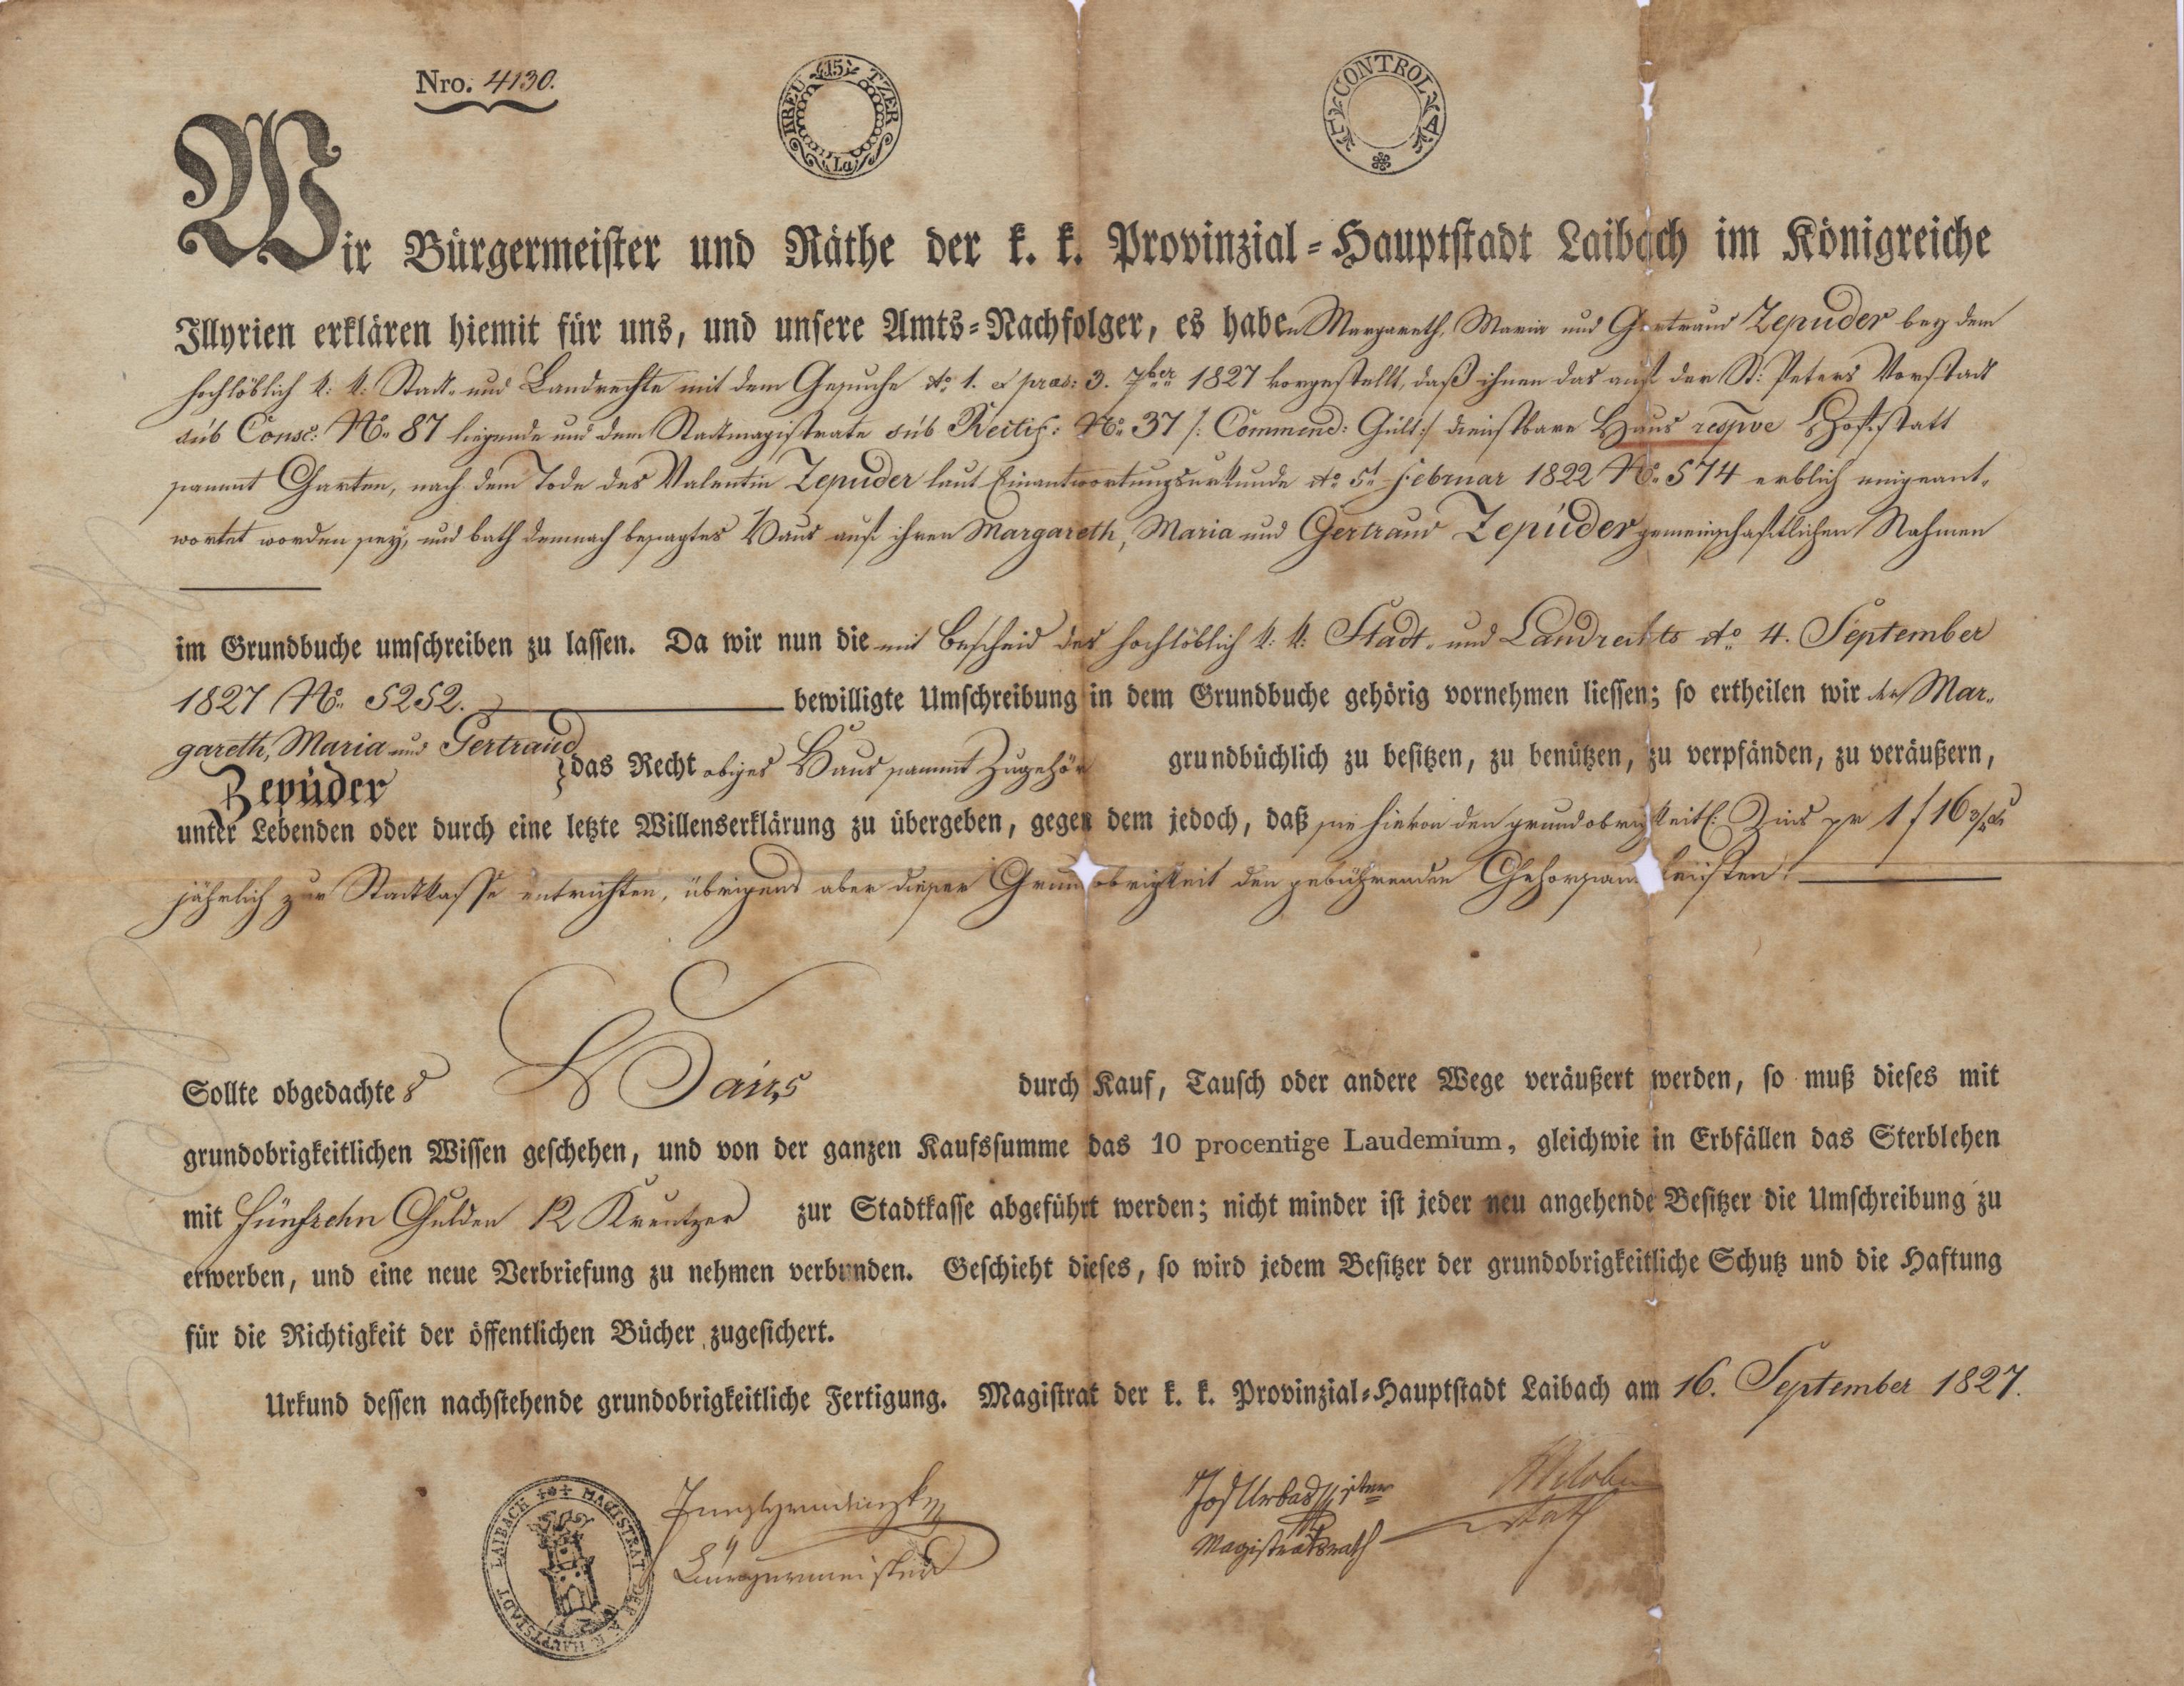 Nro. 4130.
KREU 15 TZER La
CONTROL
Wir Bürgermeister und Räthe der k. k. Provinzial-Hauptstadt Laibach im Königreiche
Illyrien erklären hiemit für uns, und unsere Amts-Nachfolger, es haben Margareth, Maria und Gertraud Zepuder bey dem
hochlöblich k: k: Stadt- und Landrechte mit dem Gesuche dto 1. et præs: 3. 7ber 1827 vorgestellt, daß ihnen das auf der St: Peters Vorstadt
sub Consc: No. 87 liegende und dem Stadtmagistrate sub Rectif: No. 37 /: Commend: Gült :/ dienstbare Haus respve Hofstatt
sammt Garten, nach dem Tode des Valentin Zepuder laut Einantwortungsurkunde dto 5t Februar 1822 No. 574 erblich eingeant-
wortet worden sey, und bath demnach besagtes Haus auf ihren Margareth, Maria und Gertraud Zepuder gemeinschaftlichen Nahmen
im Grundbuche umschreiben zu lassen. Da wir nun die mit Bescheid des hochlöblich k: k: Stadt- und Landrechts dto 4. September
1827 No. 5252. bewilligte Umschreibung in dem Grundbuche gehörig vornehmen liessen; so ertheilen wir der Mar-
gareth, Maria und Gertraud
Zepuder das Recht obiges Haus sammt Zugehör grundbüchlich zu besitzen, zu benützen, zu verpfänden, zu veräußern,
unter Lebenden oder durch eine letzte Willenserklärung zu übergeben, gegen dem jedoch, daß sie hievon den grundobrigkeitl: Zins pr 1 f 16 3/4 
jährlich zur Stadtkasse entrichten, übrigens aber dieser Grundobrigkeit den gebührenden Gehorsam leisten.
Sollte obgedachtes Haus durch Kauf, Tausch oder andere Wege veräußert werden, so muß dieses mit
grundobrigkeitlichen Wissen geschehen, und von der ganzen Kaufssumme das 10 procentige Laudemium, gleichwie in Erbfällen das Sterblehen
mit Fünfzehn Gulden 12 Kreutzer zur Stadtkasse abgeführt werden; nicht minder ist jeder neu angehende Besitzer die Umschreibung zu
erwerben, und eine neue Verbriefung zu nehmen verbunden. Geschieht dieses, so wird jedem Besitzer der grundobrigkeitliche Schutz und die Haftung
für die Richtigkeit der öffentlichen Bücher zugesichert.
Urkund dessen nachstehende grundobrigkeitliche Fertigung. Magistrat der k. k. Provinzial-Hauptstadt Laibach am 16. September 1827.
MAGISTRAT DER K. K. HAUPTSTADT LAIBACH
Bürgermeister
Magistratsrath
Rath